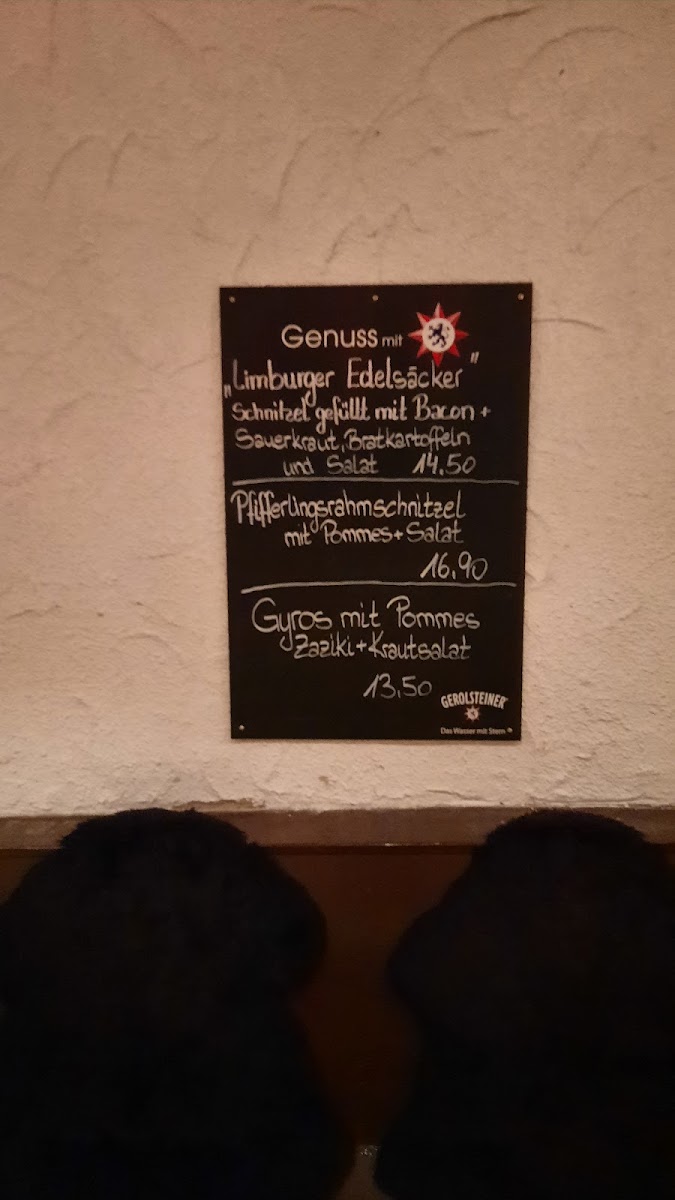 Genuss mit
„Limburger Edelsäcker"
Schnitzel gefüllt mit Bacon +
Sauerkraut, Bratkartoffeln
und Salat 14.50
Pfifferlingsrahmschnitzel
mit Pommes + Salat
16,90
Gyros mit Pommes
Zaziki + Krautsalat
13,50
GEROLSTEINER
Das Wasser mit Stern.